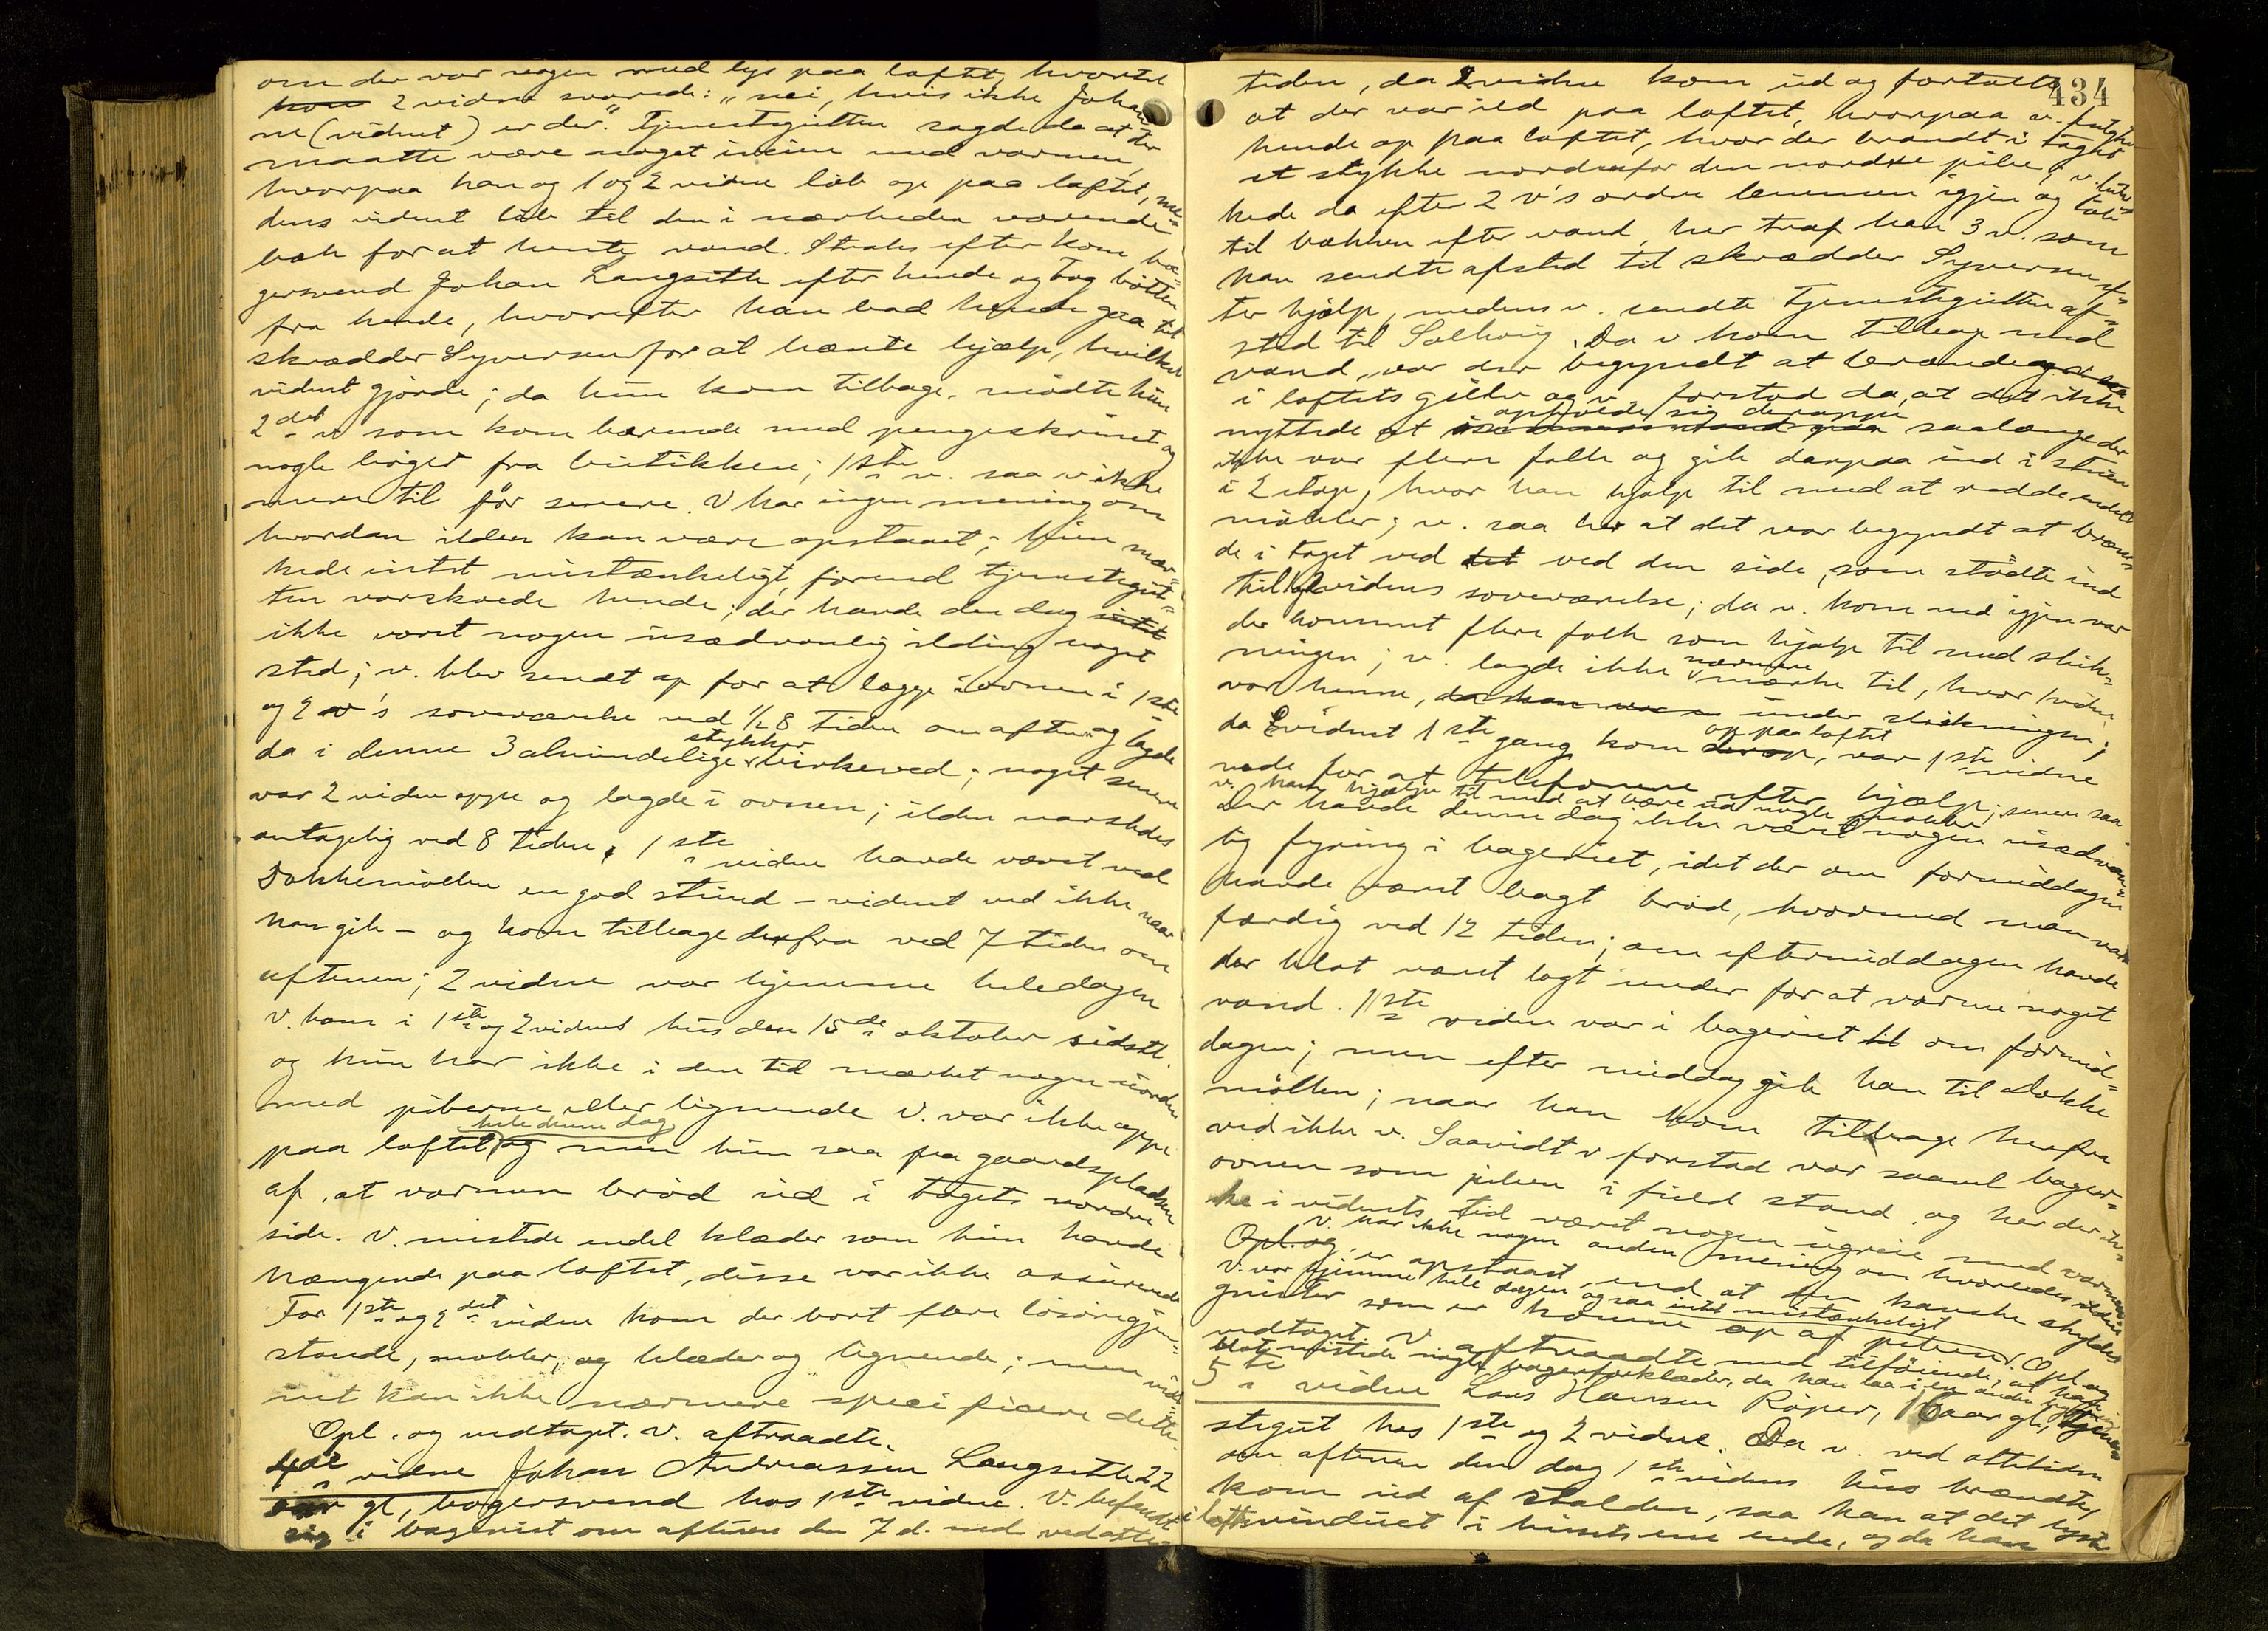 om der var nogen med lys paa loftet, hvortil
hun 2 vidne svarede: "nei, hvis ikke Johan
ne (vidnet) er der." Tjenestegutten sagde da at der
maatte være noget iveien med varmen,
hvorpaa han og 1 og 2 vidne løb op paa loftet, me-
dens vidnet løb til den i nærheden værende
bæk for at hente vand. Straks efter kom ba-
gersvend Johan Langseth efter hende og tog bøtten
fra hende, hvorefter han bad hende gaa til
skrædder Syversen for at hænte hjælp, hvilket
vidnet gjorde; da hun kom tilbage, mødte hun
2det v som kom bærende med pengeskrinet og
nogle bøger fra butikken; 1ste v. saa v ikke
mere til før senere. V har ingen mening om
hvordan ilden kan være opstaaet; hun mær-
kede intet mistænkeligt, førend tjenestegut-
ten varskoede hende; der havde den dag intet
ikke været nogen usædvanlig ilding noget
sted; v. blev sendt op for at lægge i ovnen i 1ste
og 2 v's soveværelse ved ½ 8 tiden om aftenen og lagde
da i denne 3 almindelige stykker birkeved; noget senere
var 2 vidne oppe og lagde i ovnen; ilden varskedes
antagelig ved 8 tiden; 1ste vidne havde været ved
Dokkemøllen en god stund - vidnet ved ikke naar
han gik - og kom tilbage derfra ved 7 tiden om
aftenen; 2 vidne var hjemme hele dagen
V. kom i 1ste og 2 vidnes hus den 15de oktober sidstl.
og hun har ikke i den tid mærket nogen uorden
med piberne eller lignende V. var ikke oppe
paa loftet og hele denne dag men hun saa fra gaardspladsen
af, at varmen brød ud i tagets nordre
side. V. mistede endel klæder som hun havde
hængende paa loftet, disse var ikke assurerede
For 1ste og 2det vidne kom der bort flere løsøregjen-
stande, møbler, og klæder og lignende; men vid-
net kan ikke nærmere specificere dette.
Opl. og vedtaget. V. aftraadte.
4de vidne Johan Andreassen Langseth 22
aar gl, bagersvend hos 1ste vidne. V. befandt
sig i bageriet om aftenen den 7 d. md ved otte-
434
tiden, da 2 vidne kom ud og fortalte
at der var ild paa loftet, hvorpaa v. fulgte
hende op paa loftet, hvor der brandt i taget
et stykke nordenfor den nordre pibe; v. luk-
kede da efter 2 v's ordre lemmen igjen og løb
til bækken efter vand, her traf han 3 v. som
han sendte afsted til skrædder Syversen ef-
ter hjælp, medens v. sendte tjenestegutten af-
sted til Solhøig. Da v kom tilbage med
vand, var der begyndt at brænde
i loftets gulv og v forstod da, at det ikke
nyttede at opholde sig deroppe saalænge der
ikke var flere folk og gik derpaa ind i stuen
i 2 etage, hvor han hjalp til med at redde endel
møbler; v. saa her at det var begyndt at bræn-
de i taget ved det ved den side, som stødte ind
til vidnes soveværelse; da v. kom ned igjen var
der kommet flere folk som hjalp til med sluk-
ningen; v. lagde ikke nærmere mærke til, hvor 1 vidne
var henne, under slukningen;
da vidnet 1ste gang kom op paa loftet, var 1ste vidne
nede for at telefonere efter hjælp; senere saa
v. ham hjælpe til med at bære ud nogle møbler
Der havde denne dag ikke været nogen usædvan-
lig fyring i bageriet, idet der om formiddagen
havde været bagt brød, hvormed man var
færdig ved 12 tiden; om eftermiddagen havde
der blot været lagt under for at varme noget
vand. 1ste vidne var i bageriet til om formid-
dagen; men efter middag gik han til Dokke
møllen; naar han kom tilbage herfra
ved ikke v. Saavidt v forstod var saavel bager-
ovnen som piben i fuld stand, og har der ik-
ke i vidnets tid været nogen ugreie med varmen
Opl. og V. har ikke nogen anden mening om hvorledes ilden
er opstaaet, end at den kanske skyldes
V. var hjemme hele dagen og saa intet mistænkeligt
gnister som er komne op af piben. Opl. og
vedtaget V aftraadte med tilføiende, at han
blot mistede nogle bagerforklæder, da han laa i en anden bygning
5te vidne Lars Hansen Røper, aar gl, tjene-
stegut hos 1ste og 2 vidne. Da v. ved ottetiden
om aftenen den dag 1ste vidnes hus brændte,
kom ud af stalden, saa han at det lyste
i loftsvinduet i husets ene ende, og da han